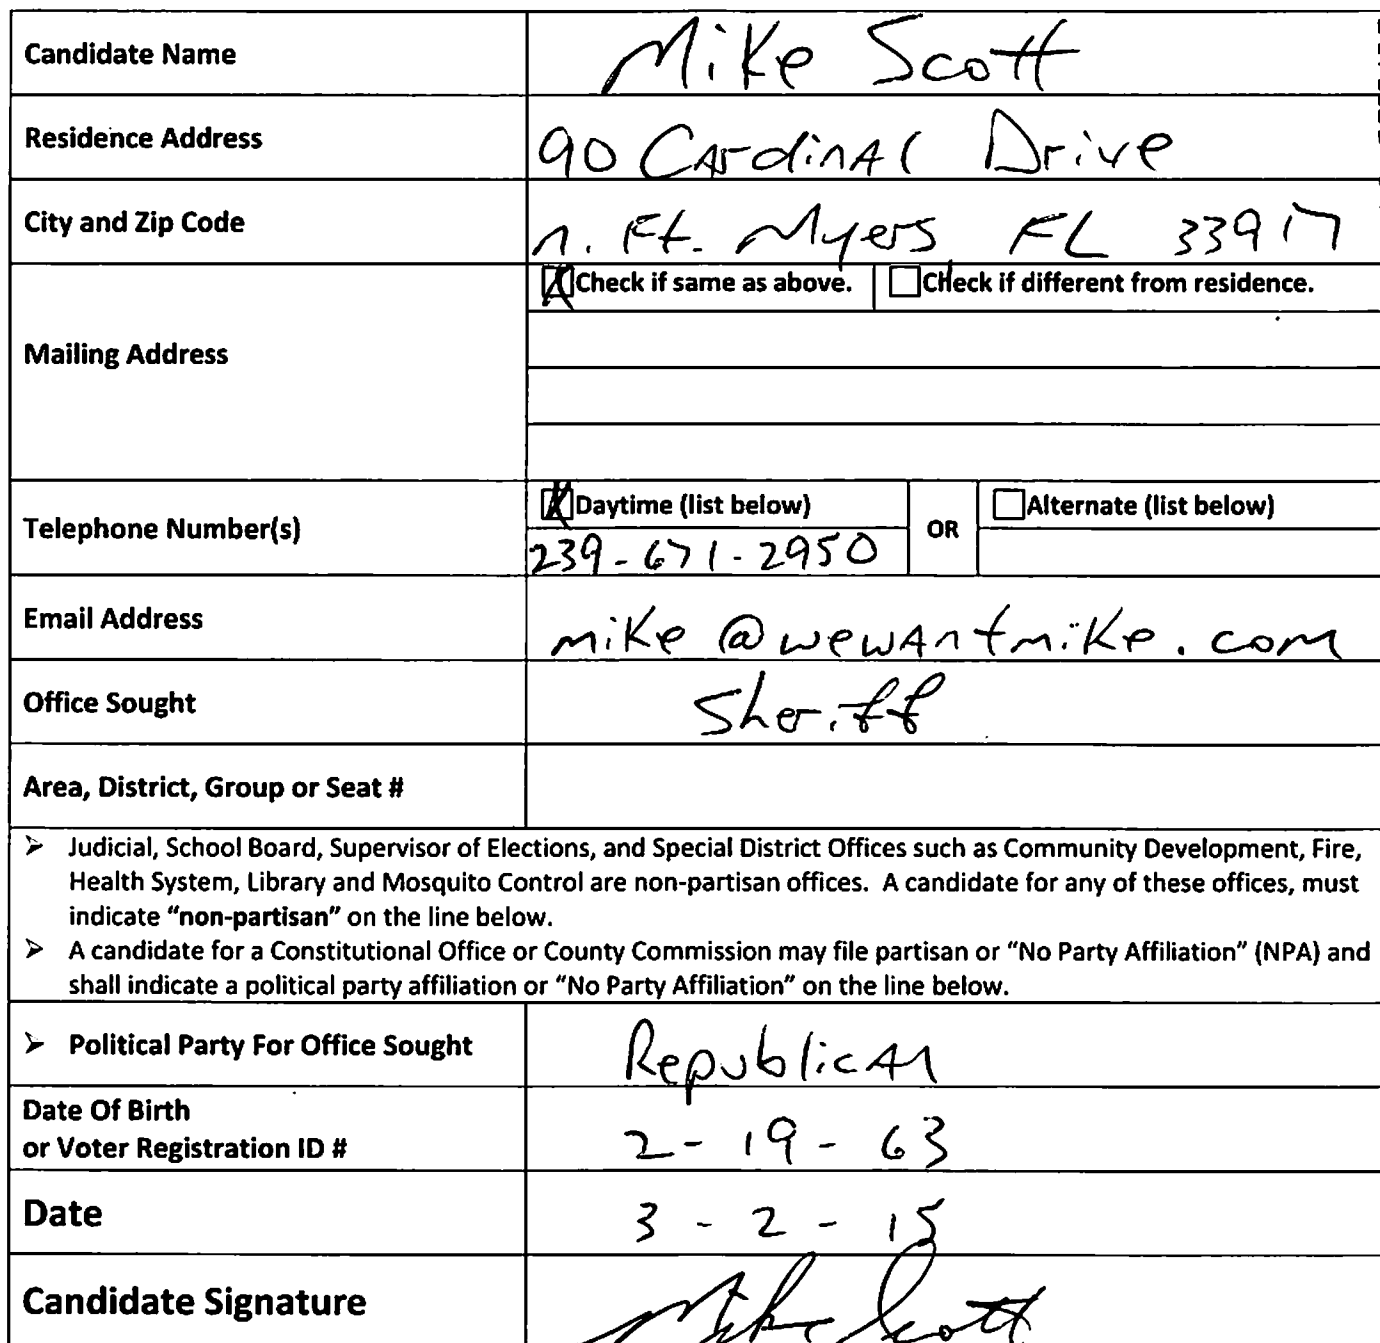 Candidate Name Mike Scott
Residence Address 90 Cardinal Drive
City and Zip Code n. Ft. Myers, FL 33917
Check if same as above. Check if different from residence.
Mailing Address
Daytime (list below) OR Alternate (list below)
Telephone Number(s)
239-671-2950
Email Address mike@wewantmike.com
Office Sought Sheriff
Area, District, Group or Seat #
➢ Judicial, School Board, Supervisor of Elections, and Special District Offices such as Community Development, Fire,
Health System, Library and Mosquito Control are non-partisan offices. A candidate for any of these offices, must
indicate "non-partisan" on the line below.
➢ A candidate for a Constitutional Office or County Commission may file partisan or "No Party Affiliation" (NPA) and
shall indicate a political party affiliation or "No Party Affiliation" on the line below.
➢ Political Party For Office Sought Republican
Date Of Birth
or Voter Registration ID # 2-19-63
Date 3-2-15
Candidate Signature Mike Scott